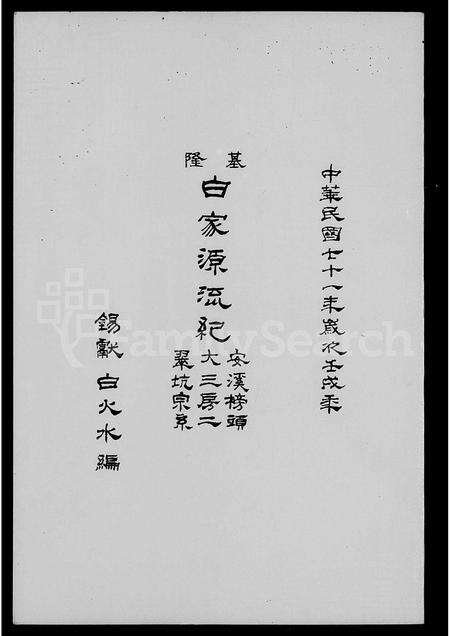 中華民國七十一年歲次壬戌年
基隆
白家源流紀
安溪榜頭
大三房二
翠坑宗系
錫獻 白火水編
FamilySearch